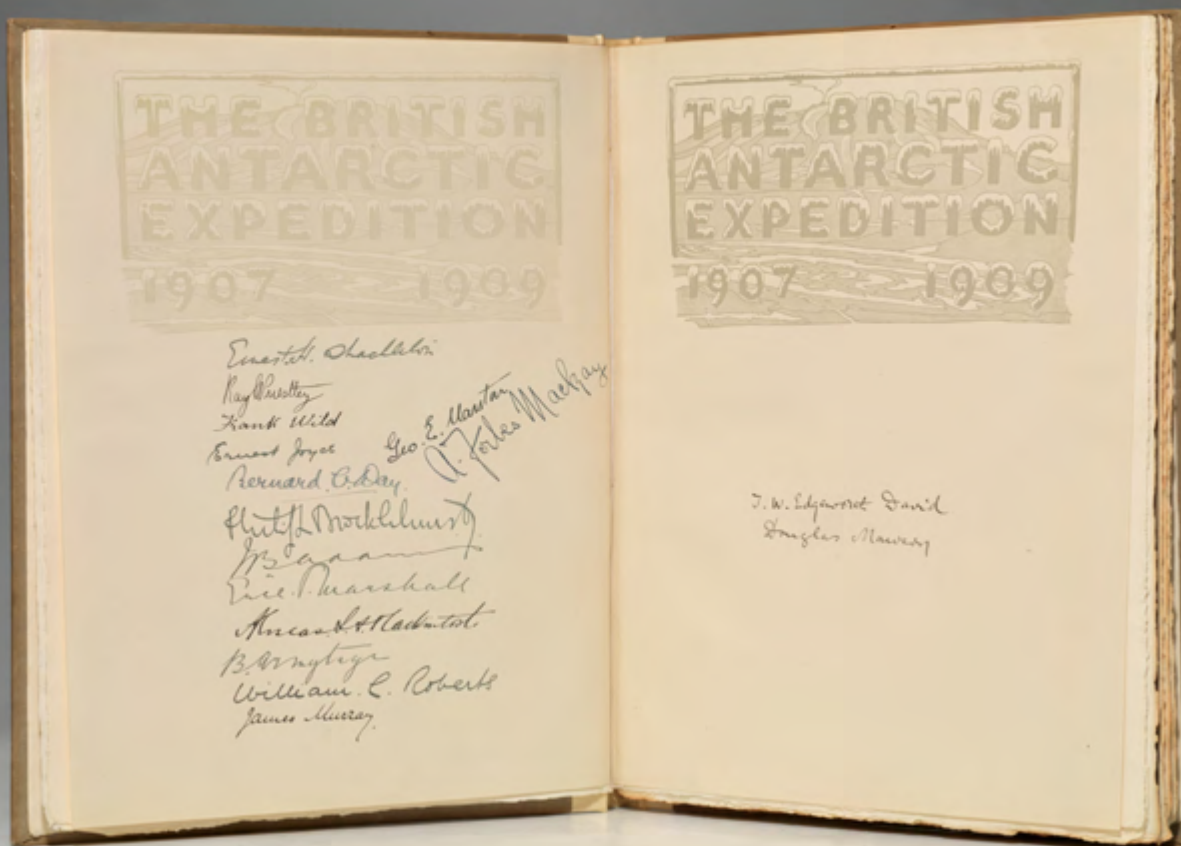 THE BRITISH
ANTARCTIC
EXPEDITION
1907 1909
Ernest H. Shackleton
Raymond Priestley
Frank Wild
Ernest Joyce
Geo. E. Marston
A. Forbes Mackay
Bernard C. Day.
Philip L Brocklehurst
JB Adams
Eric S. Marshall
Aeneas L. A. Mackintosh.
B. Armytage
William. C. Roberts
James Murray.
THE BRITISH
ANTARCTIC
EXPEDITION
1907 1909
T. W. Edgeworth David
Douglas Mawson